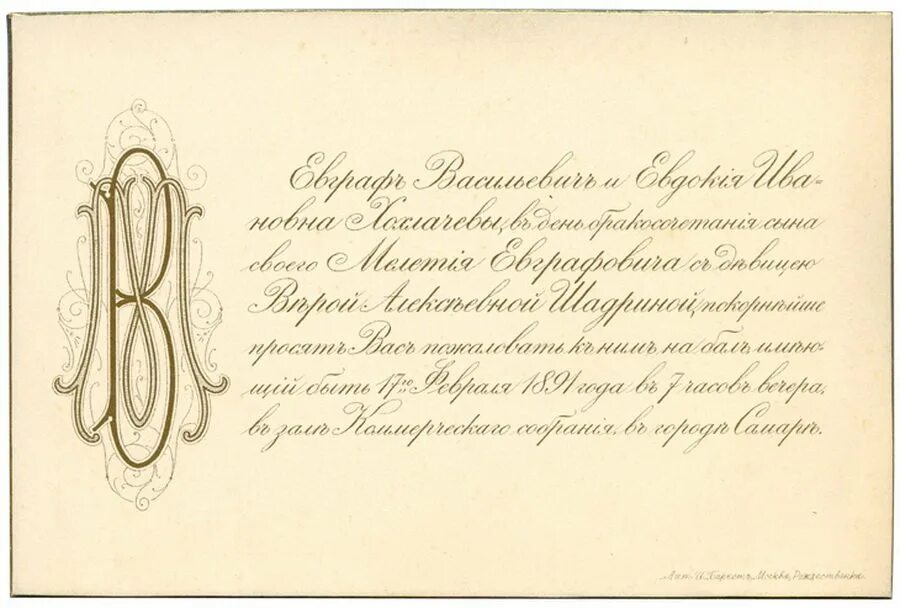 Евграфъ Васильевичъ и Евдокія Ива=
новна Хохлачевы, въ день бракосочетанія сына
своего Мелетія Евграфовича съ дѣвицею
Вѣрой Алексѣевной Шадриной, покорнѣйше
просятъ Васъ пожаловать къ нимъ на балъ, имѣю-
щій быть 17го Февраля 1891 года въ 7 часовъ вечера,
въ залѣ Коммерческаго собранія, въ городѣ Самарѣ.
Москва, Рождественка.